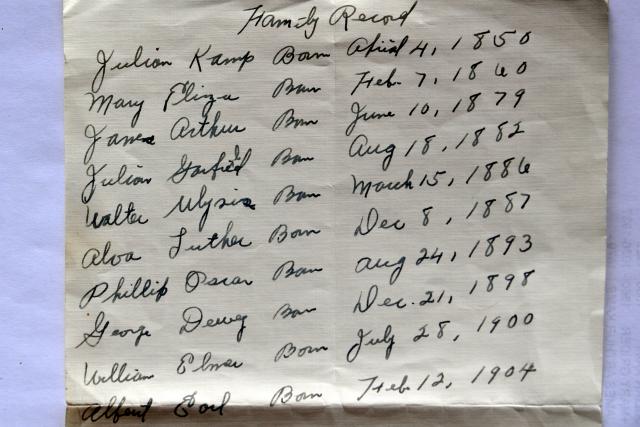 Family Record
Julian Kamp Born April 4, 1850
Mary Eliza Born Feb. 7, 1860
James Arthur Born June 10, 1879
Julian Garfield Born Aug 18, 1882
Walter Ulysis Born March 15, 1886
Alva Luther Born Dec 8, 1887
Phillip Oscar Born Aug 24, 1893
George Dewey Born Dec. 21, 1898
William Elmer Born July 28, 1900
Albert Earl Born Feb 12, 1904